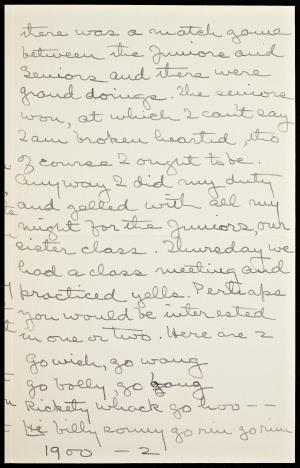 there was a match game
between the Juniors and
Seniors and there were
grand doings. The seniors
won, at which I can't say
I am broken hearted, tho
of course I ought to be.
Anyway I did my duty
and yelled with all my
might for the Juniors, our
sister class. Thursday we
had a class meeting and
practiced yells. Perhaps
you would be interested
in one or two. Here are 2
Go wich, go wang
go bolly, go gong
Rickety whack go hoo --
He billy sonny go rim go rim
1900 - 2